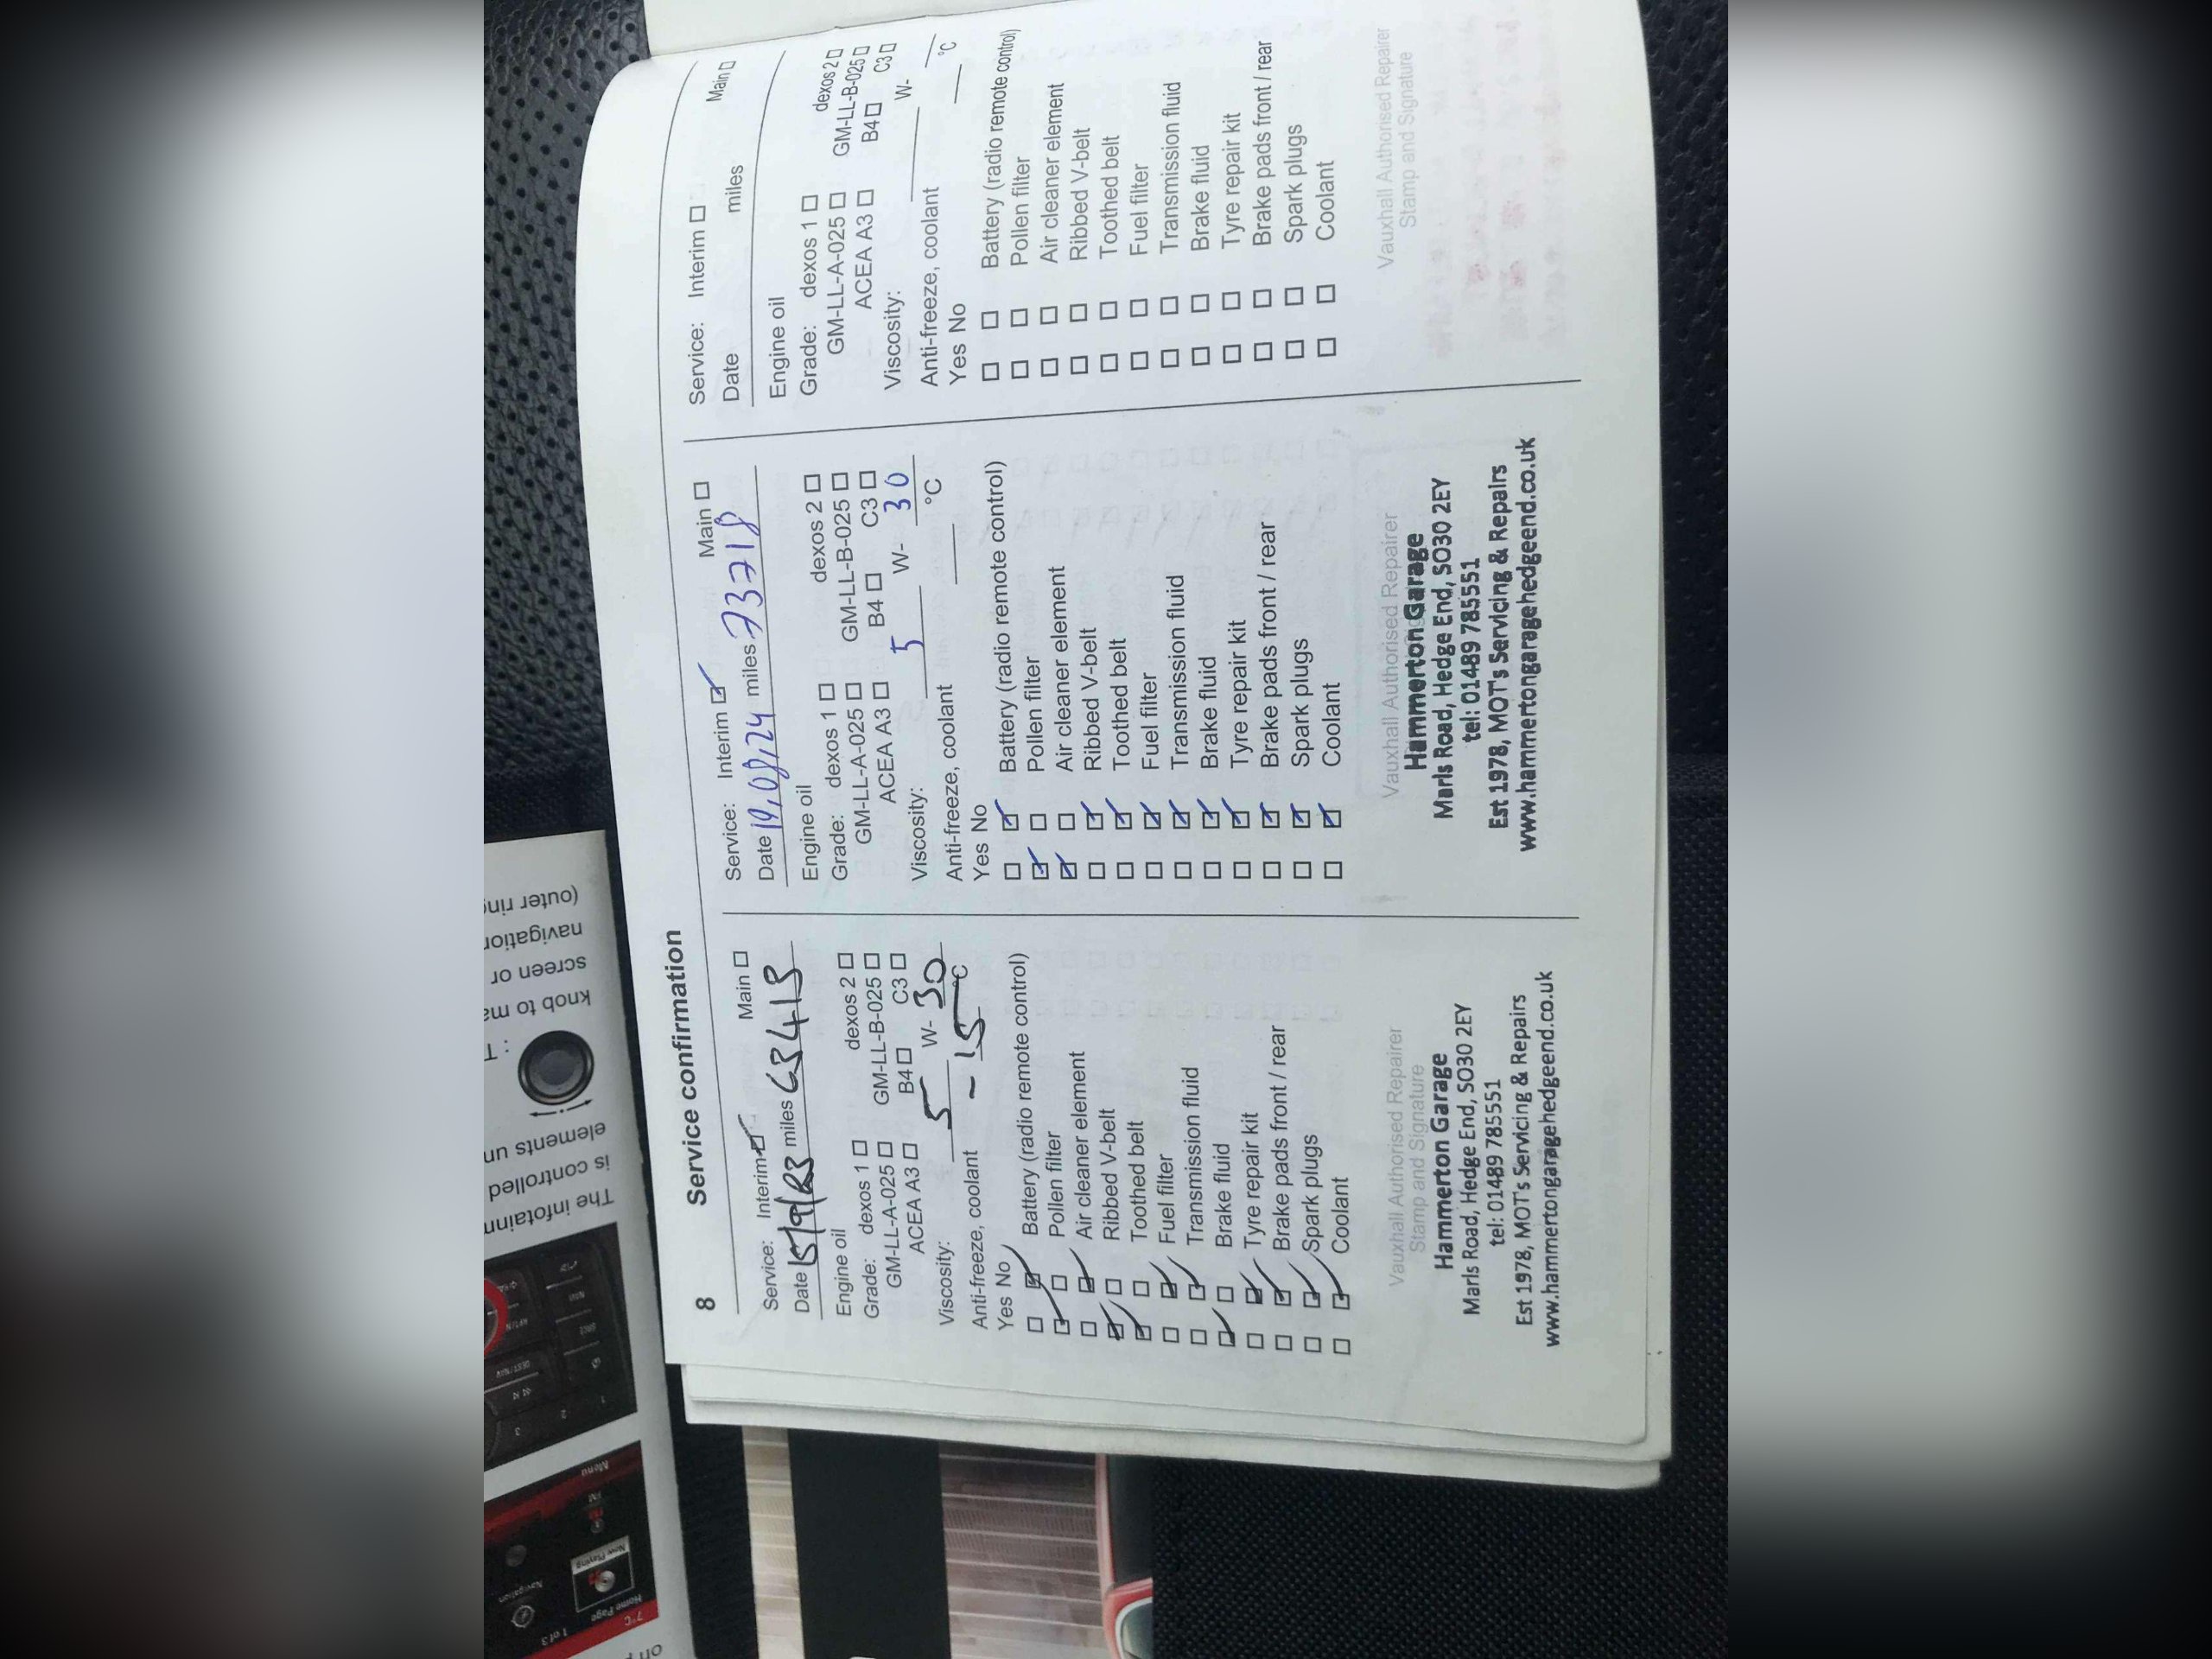 8 Service confirmation
Service: Interim ☑ Main ☐
Date 15/9/23 miles 63413
Engine oil
Grade: dexos 1 ☐ dexos 2 ☐
GM-LL-A-025 ☐ GM-LL-B-025 ☐
ACEA A3 ☐ B4 ☐ C3 ☐
Viscosity: 5 W- 30
Anti-freeze, coolant -15 °C
Yes No
☐ ☑ Battery (radio remote control)
☑ ☐ Pollen filter
☐ ☑ Air cleaner element
☑ ☐ Ribbed V-belt
☑ ☐ Toothed belt
☐ ☑ Fuel filter
☐ ☑ Transmission fluid
☑ ☐ Brake fluid
☐ ☑ Tyre repair kit
☐ ☑ Brake pads front / rear
☐ ☑ Spark plugs
☐ ☑ Coolant
Vauxhall Authorised Repairer
Stamp and Signature
Hammerton Garage
Marls Road, Hedge End, SO30 2EY
tel: 01489 785551
Est 1978, MOT's Servicing & Repairs
www.hammertongaragehedgeend.co.uk
Service: Interim ☑ Main ☐
Date 19,08,24 miles 73718
Engine oil
Grade: dexos 1 ☐ dexos 2 ☐
GM-LL-A-025 ☐ GM-LL-B-025 ☐
ACEA A3 ☐ B4 ☐ C3 ☐
Viscosity: 5 W- 30
Anti-freeze, coolant °C
Yes No
☐ ☑ Battery (radio remote control)
☑ ☐ Pollen filter
☑ ☐ Air cleaner element
☐ ☑ Ribbed V-belt
☐ ☑ Toothed belt
☐ ☑ Fuel filter
☐ ☑ Transmission fluid
☐ ☑ Brake fluid
☐ ☑ Tyre repair kit
☐ ☑ Brake pads front / rear
☐ ☑ Spark plugs
☐ ☑ Coolant
Vauxhall Authorised Repairer
Hammerton Garage
Marls Road, Hedge End, SO30 2EY
tel: 01489 785551
Est 1978, MOT's Servicing & Repairs
www.hammertongaragehedgeend.co.uk
Service: Interim ☐ Main ☐
Date miles
Engine oil
Grade: dexos 1 ☐ dexos 2 ☐
GM-LL-A-025 ☐ GM-LL-B-025 ☐
ACEA A3 ☐ B4 ☐ C3 ☐
Viscosity: W-
Anti-freeze, coolant °C
Yes No
☐ ☐ Battery (radio remote control)
☐ ☐ Pollen filter
☐ ☐ Air cleaner element
☐ ☐ Ribbed V-belt
☐ ☐ Toothed belt
☐ ☐ Fuel filter
☐ ☐ Transmission fluid
☐ ☐ Brake fluid
☐ ☐ Tyre repair kit
☐ ☐ Brake pads front / rear
☐ ☐ Spark plugs
☐ ☐ Coolant
Vauxhall Authorised Repairer
Stamp and Signature
The
is controlled
elements
: T
knob to
screen or
(outer
7°C
Home Page
1 of 3
Navigation
Now Playing
FM
Menu